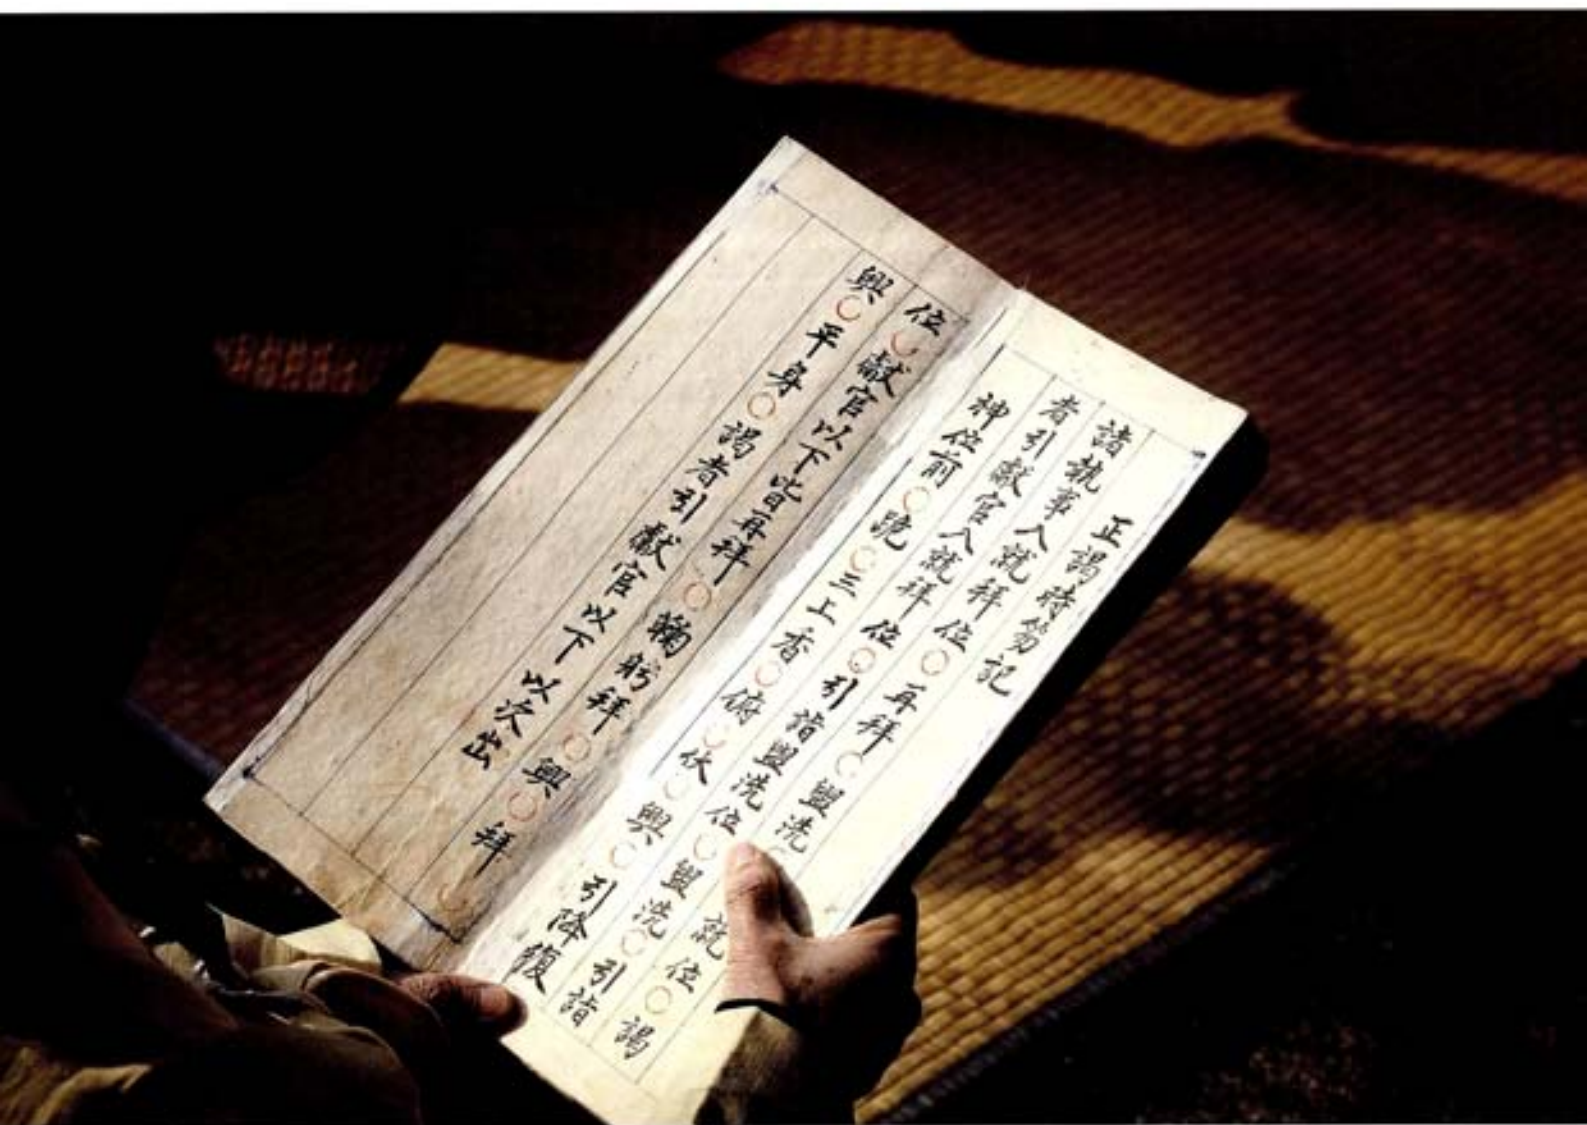 正謁時笏記
諸執事入就拜位○再拜○盥洗○就位○謁
者引獻官入就拜位○引詣盥洗位○盥洗○引詣
神位前○跪○三上香○俯○伏○興○引降復
位○獻官以下皆再拜○鞠躬拜○興○拜○
興○平身○謁者引獻官以下以次出